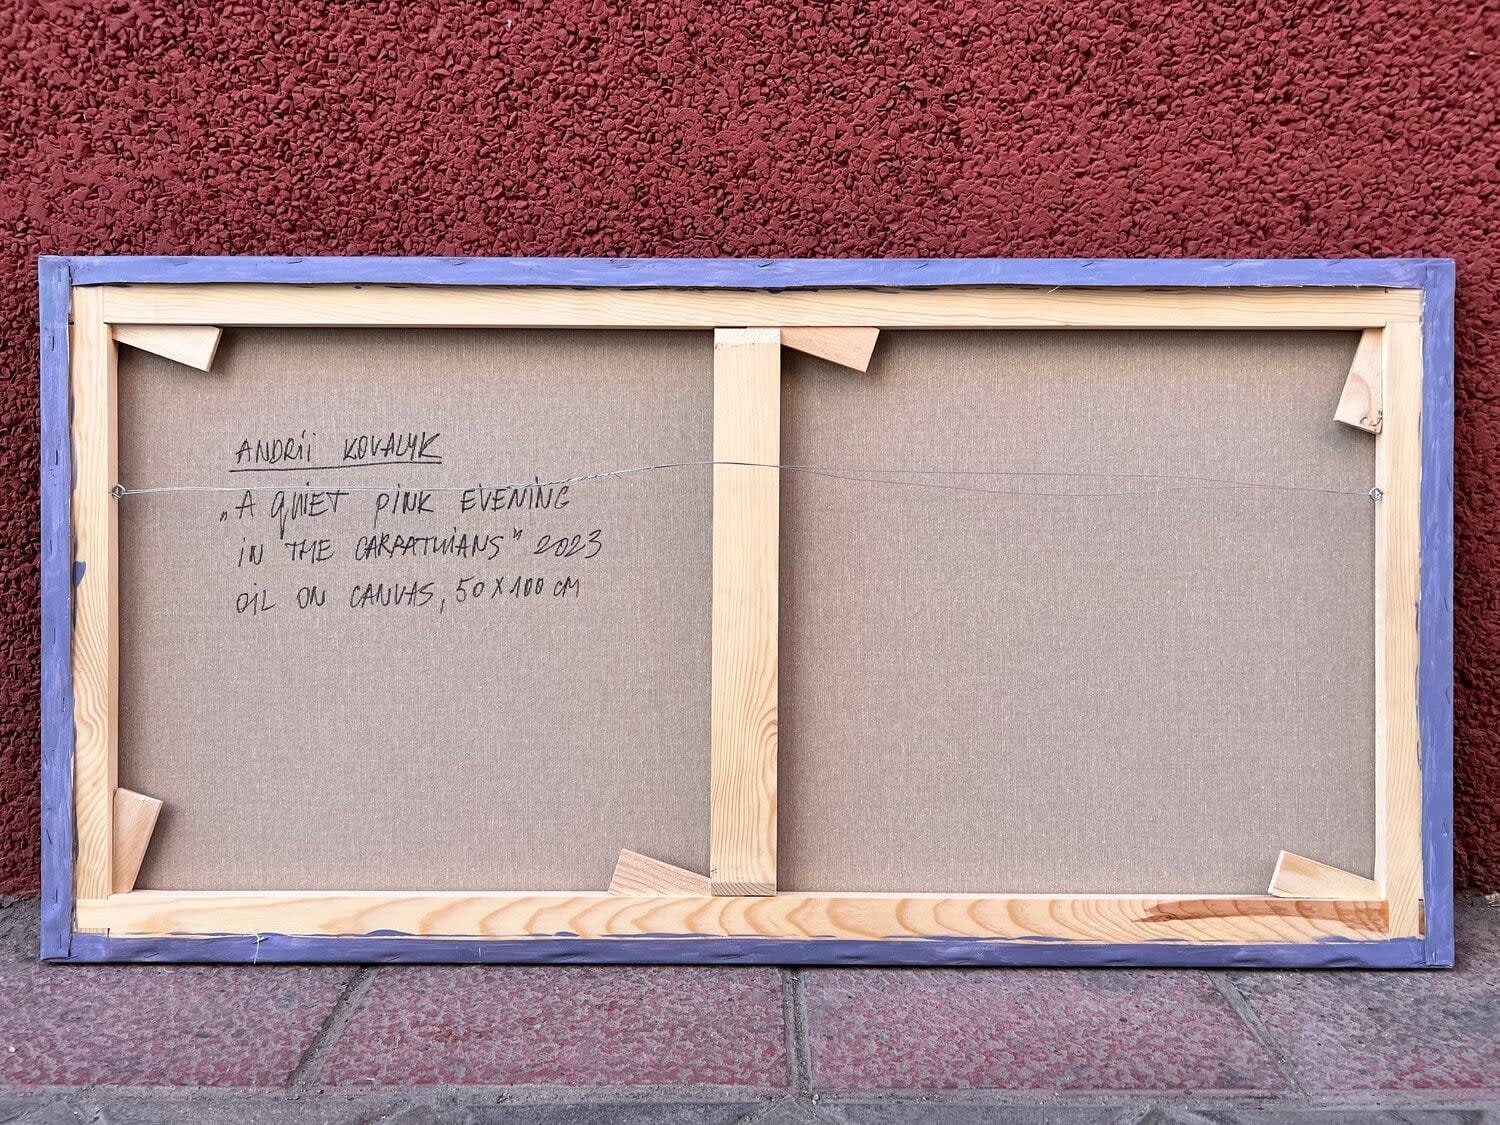 ANDRii KOVALYK
„A QUIET PINK EVENING
IN THE CARPATHIANS" 2023
OIL ON CANVAS, 50 X 100 CM